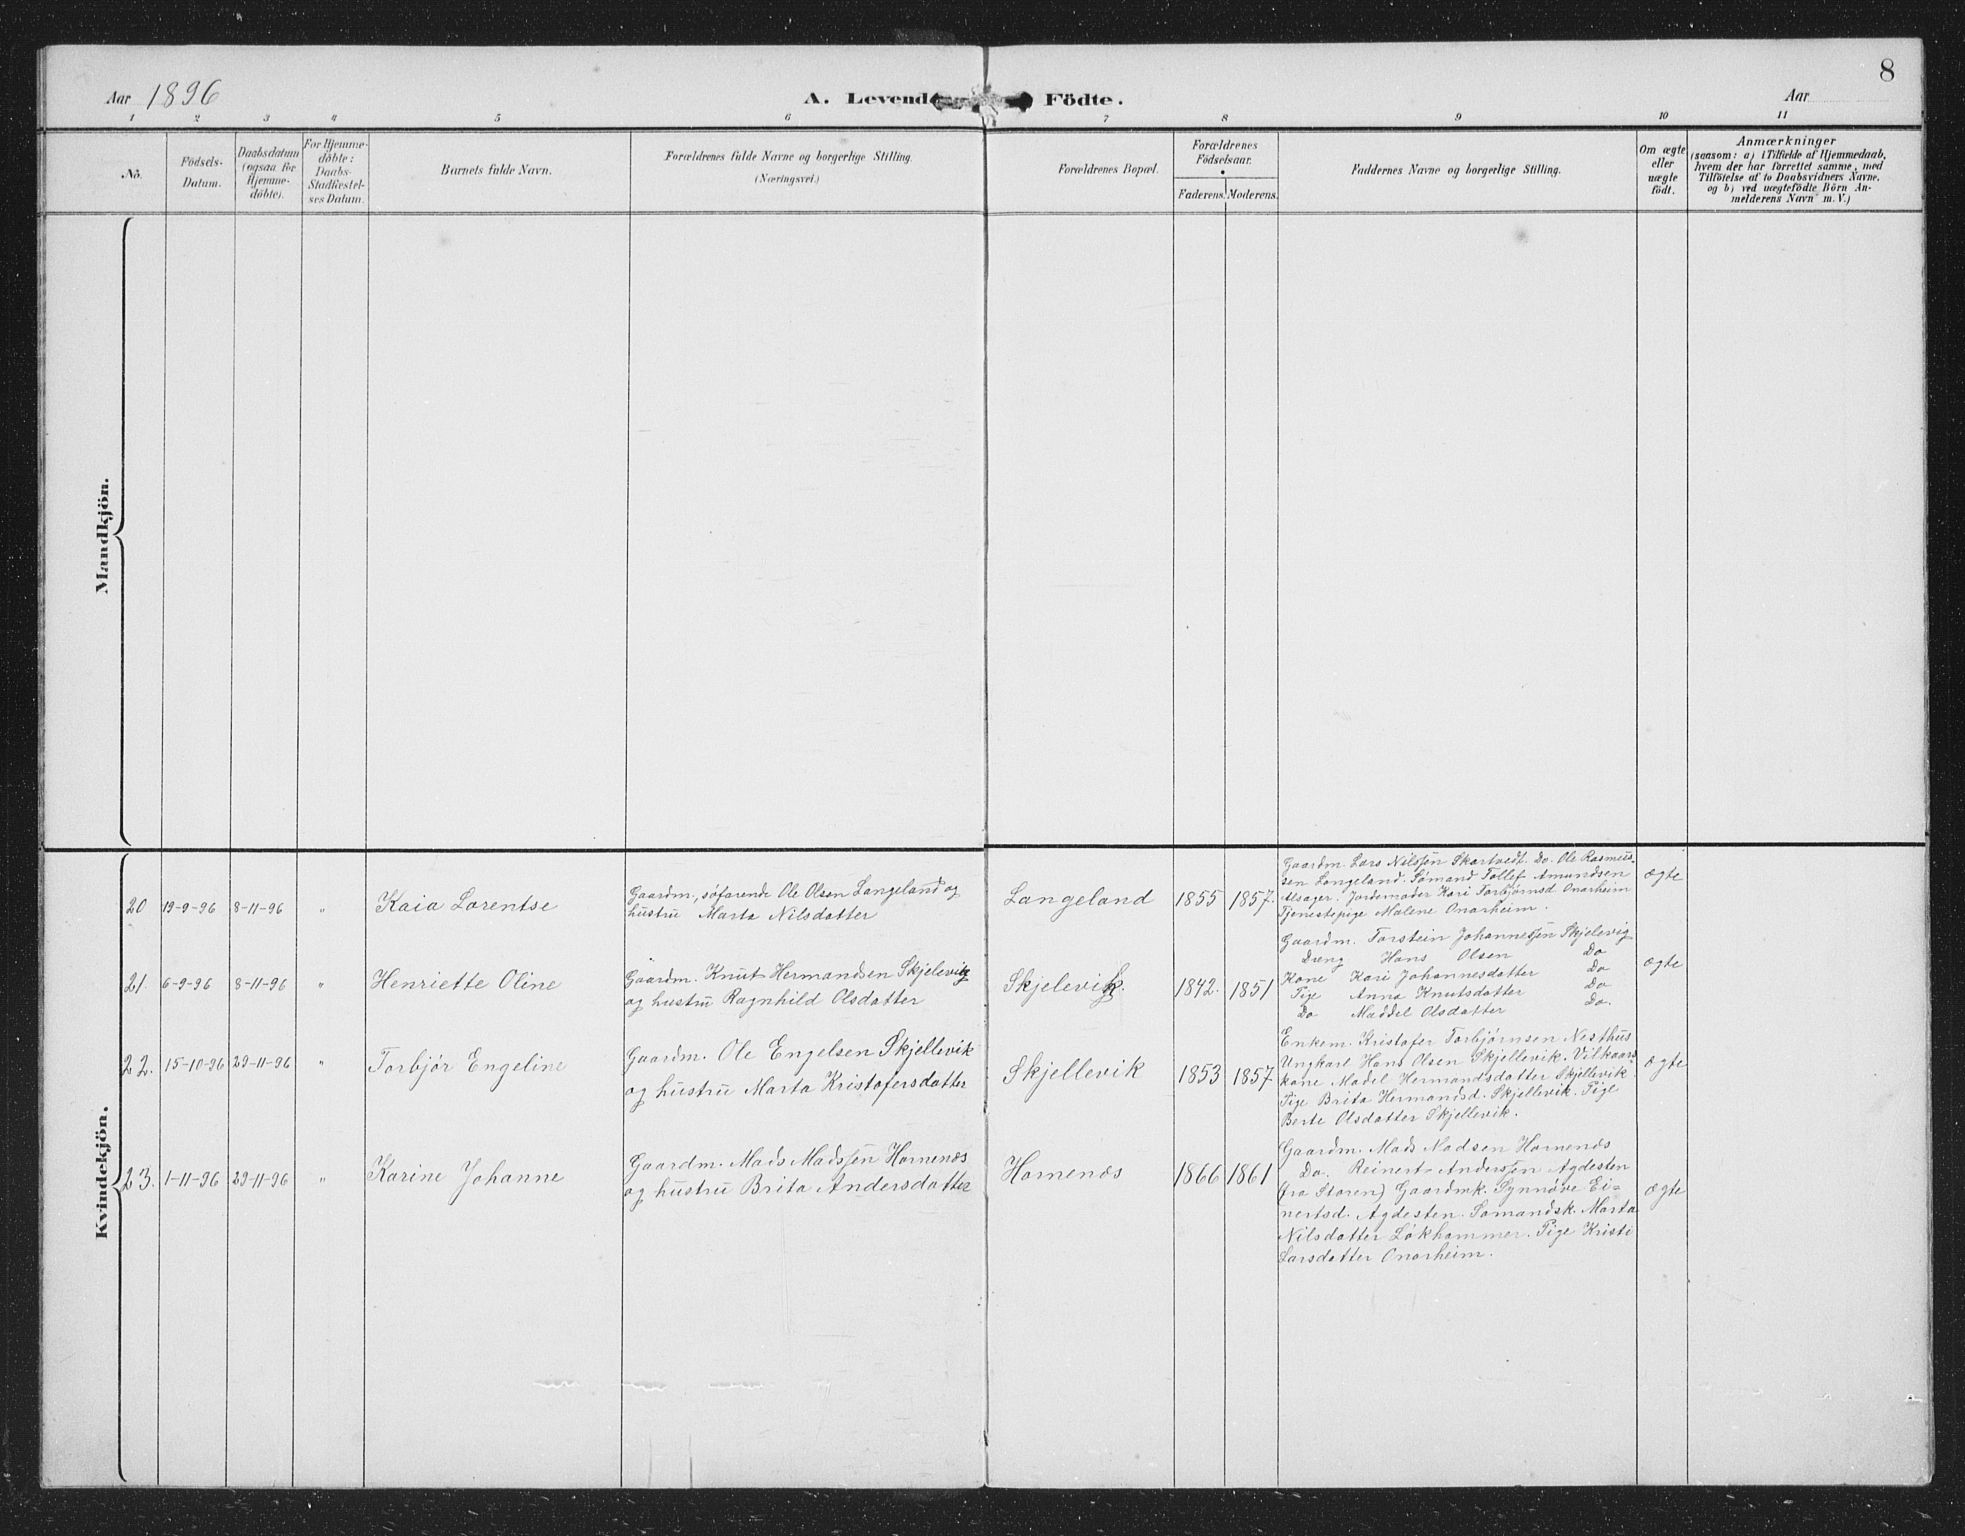 Aar 1896
A. Levende Födte.
8
Aar
1 2 3 4 5 6 7 8 9 10 11
No.
Födsels-
Datum.
Daabsdatum
(ogsaa for
Hjemme-
døbte).
For Hjemme-
døbte:
Daabs-
Stadfestel-
ses Datum.
Barnets fulde Navn.
Forældrenes fulde Navne og borgerlige Stilling.
(Næringsvei.)
Forældrenes Bopæl.
Forældrenes
Födselsaar.
Faderens. Moderens.
Faddernes Navne og borgerlige Stilling.
Om ægte
eller
uægte
født.
Anmærkninger
(saasom: a) i Tilfælde af Hjemmedaab,
hvem der har forrettet samme, med
Tilföielse af to Daabsvidners Navne,
og b) ved uægtefödte Börn An-
melderens Navn m. V.)
Mandkjön.
Kvindekjön.
20 19-9-96 8-11-96 "
Kaia Lorentse
Gaardm., söfarende Ole Olsen Langeland og
hustru Marta Nilsdatter
Langeland 1855 1857.
Gaardm. Lars Nilssen Skartvedt. Do. Ole Rasmus-
sen Langeland. Sömand Tollef Amundsen
Alsager. Jordemoder Kari Torbjørnsd Onarheim
Tjenestepige Malene Onarheim.
ægte
21. 6-9-96 8-11-96 "
Henriette Oline
Gaardm. Knut Hermandsen Skjelevig
og hustru Ragnhild Olsdatter
Skjelevik. 1842. 1851
Gaardm. Torstein Johannessen Skjelevig
Dreng Hans Olsen Do
Kone Kari Johannesdatter Do
Pige Anna Knutsdatter Do
Do Maddel Olsdatter Do.
ægte
22. 15-10-96 29-11-96 "
Torbjør Engeline
Gaardm. Ole Engelsen Skjellevik
og hustru Marta Kristofersdatter
Skjellevik 1853 1857
Enkem. Kristofer Torbjørnsen Nesthus
Ungkarl Hans Olsen Skjellevik. Vilkaars-
kone Madel Hermandsdatter Skjellevik
Pige Brita Hermandsd. Skjellevik. Pige
Berte Olsdatter Skjellevik.
ægte
23. 1-11-96 29-11-96 "
Karine Johanne
Gaardm. Mads Madssen Hornenæs
og hustru Brita Andersdatter
Hornenæs 1866 1861
Gaardm. Mads Madsen Hornenæs
Do. Reinert Anderssen Agdesten
(fra Storen) Gaardmk. Synnøve Ei-
nertsd. Agdesten. Sömandsk. Marta
Nilsdatter Lökhammer. Pige Kristi
Larsdatter Onarheim.
ægte